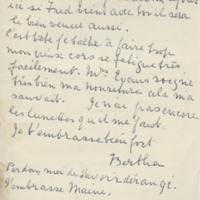 ici si Fred vient avec toi il sera
le bienvenue aussi.
C'est bête je tache à faire trop
mon vieux cors se fatigue très
facilement. Mrs Evans soigne
très bien ma nourriture cela ma
sauvait. Je n'ai pas encore
les lunettes qu'il me faut
Je t'embrasse bien fort
Bertha
Pardons moi de t'avoir dérangé.
J'embrasse